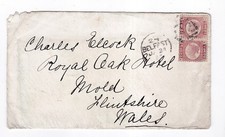 Charles Elcock
Royal Oak Hotel
Mold
Flintshire
Wales.
BELFAST